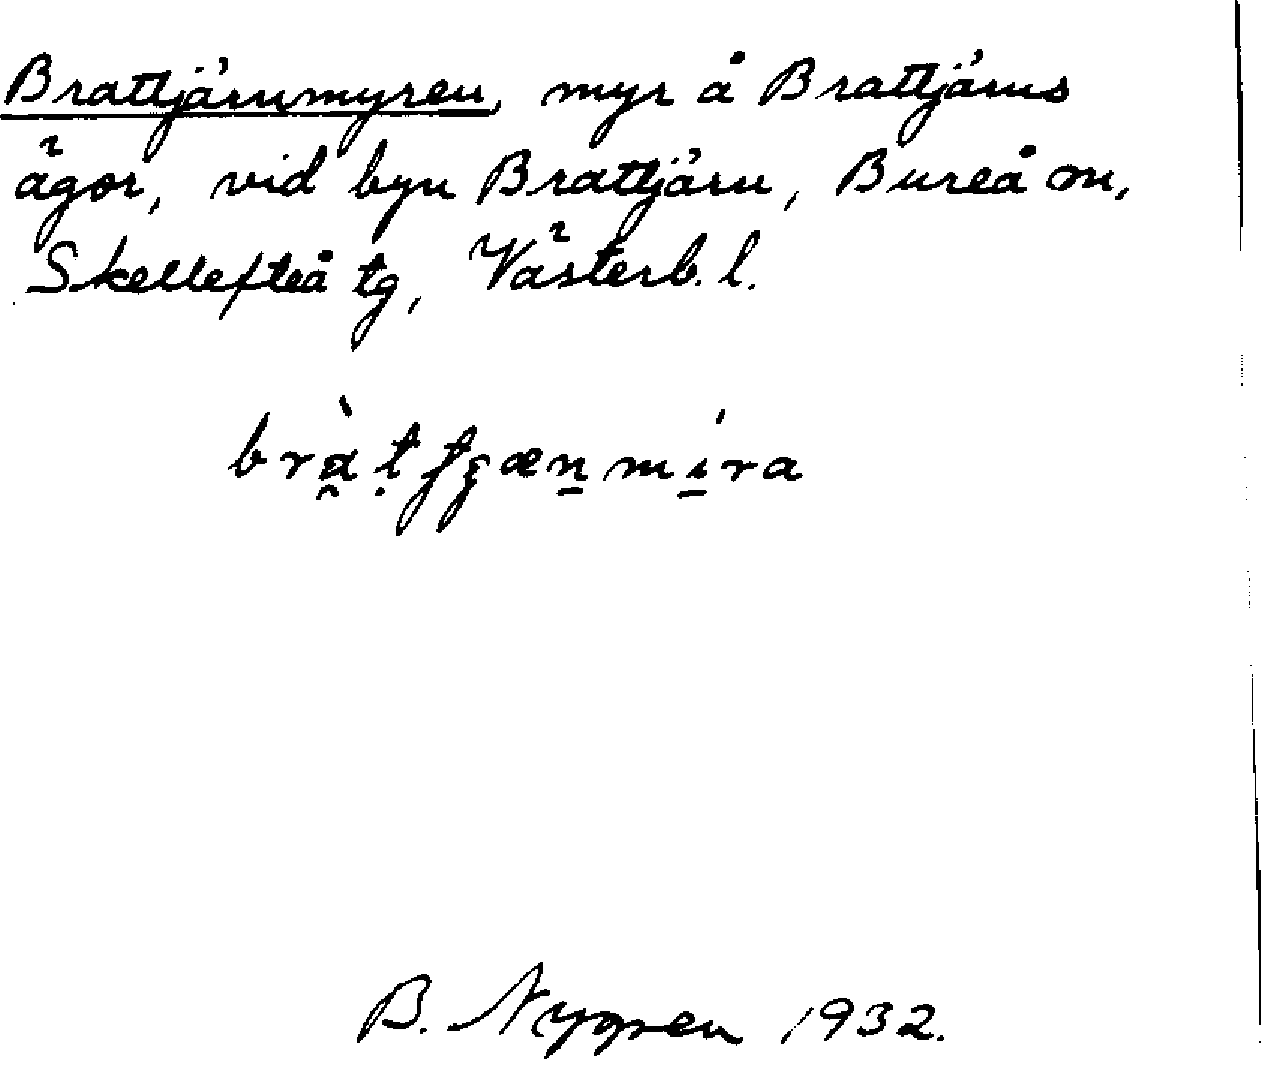 Brattjärnmyren, myr å Brattjärns
ägor, vid byn Brattjärn, Bureå m,
Skellefteå tg, Västerb. l.
B. Nygren 1932.